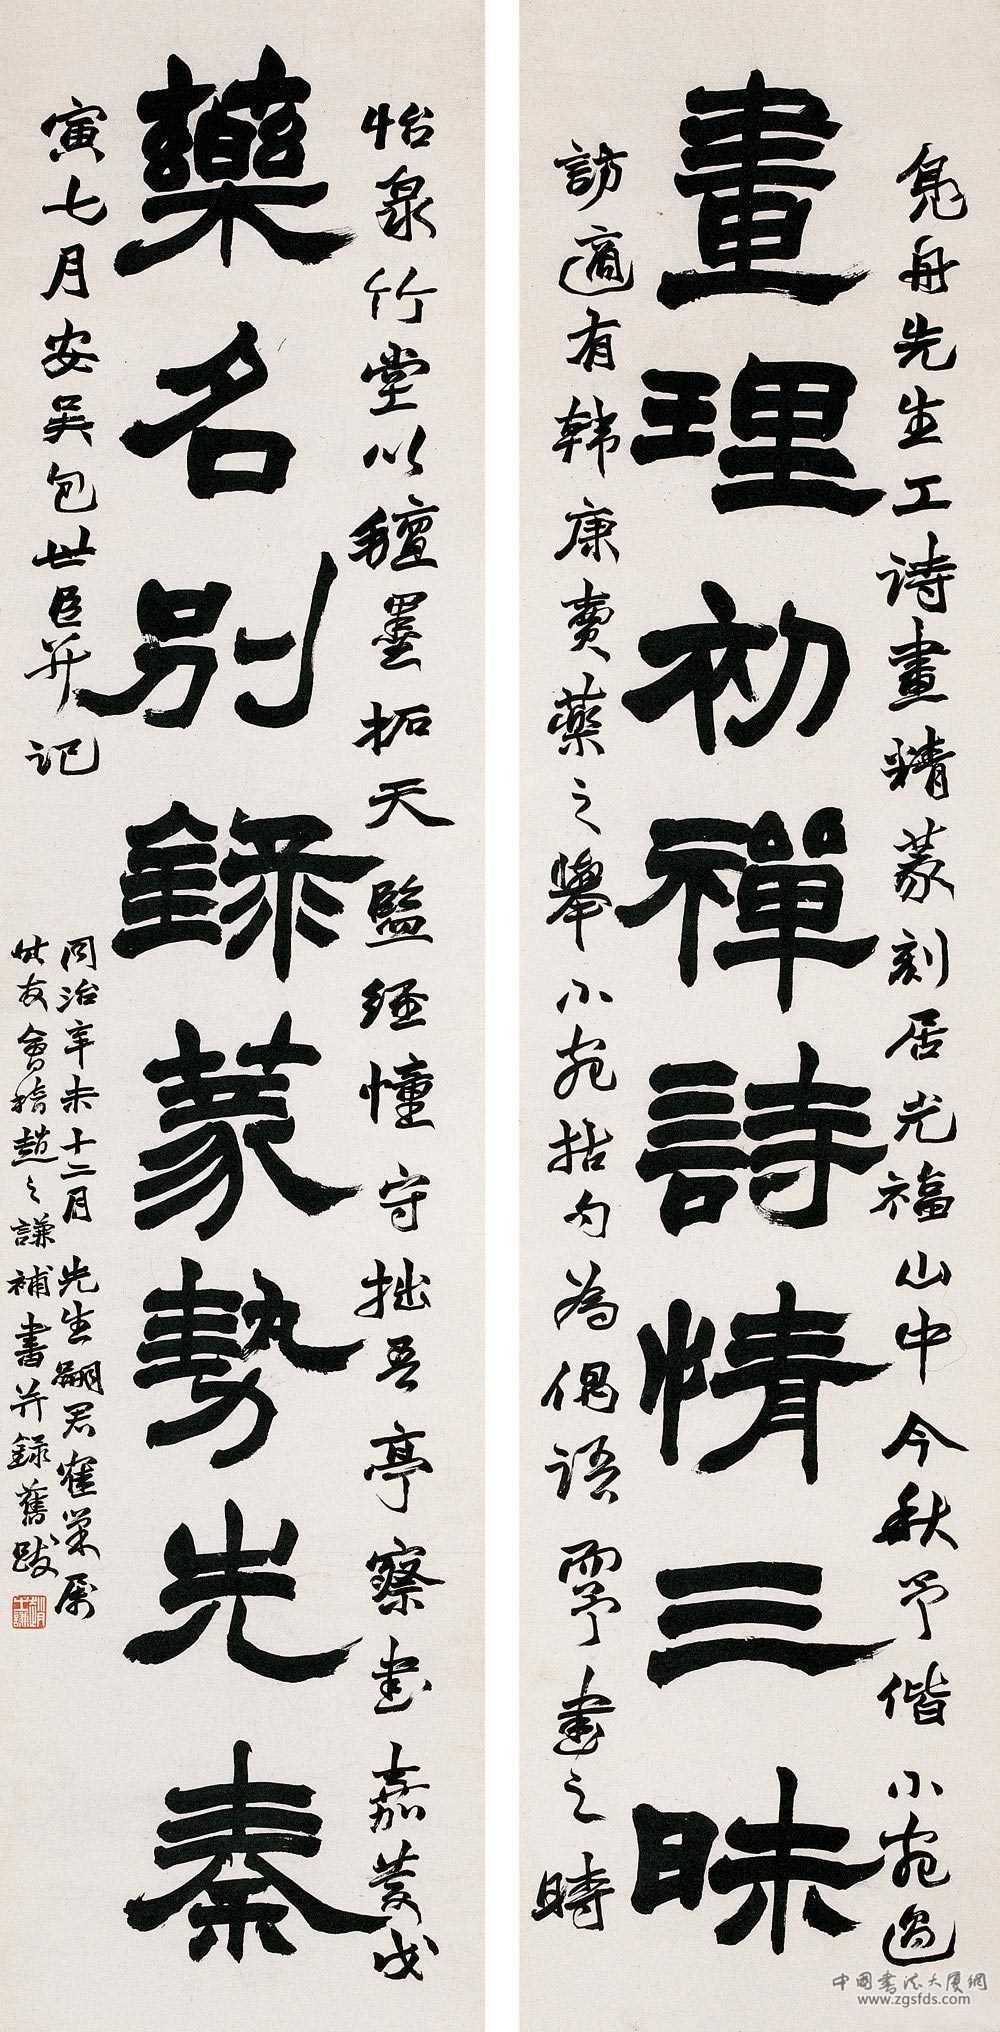 畫理初禪詩情三昧
凫舟先生工诗畫精篆刻居光福山中今秋予偕小宛過
訪適有韓康賣藥之舉小宛括句為偶语而予書之時
藥名別錄篆勢先秦
怡泉竹堂以氊墨拓天監經幢守拙吾亭察書嘉慶戊
寅七月安吴包世臣并记
同治辛未十二月先生嗣君
故友會稽趙之謙補書并録舊跋
中國書法大厦網
www.zgsfds.com